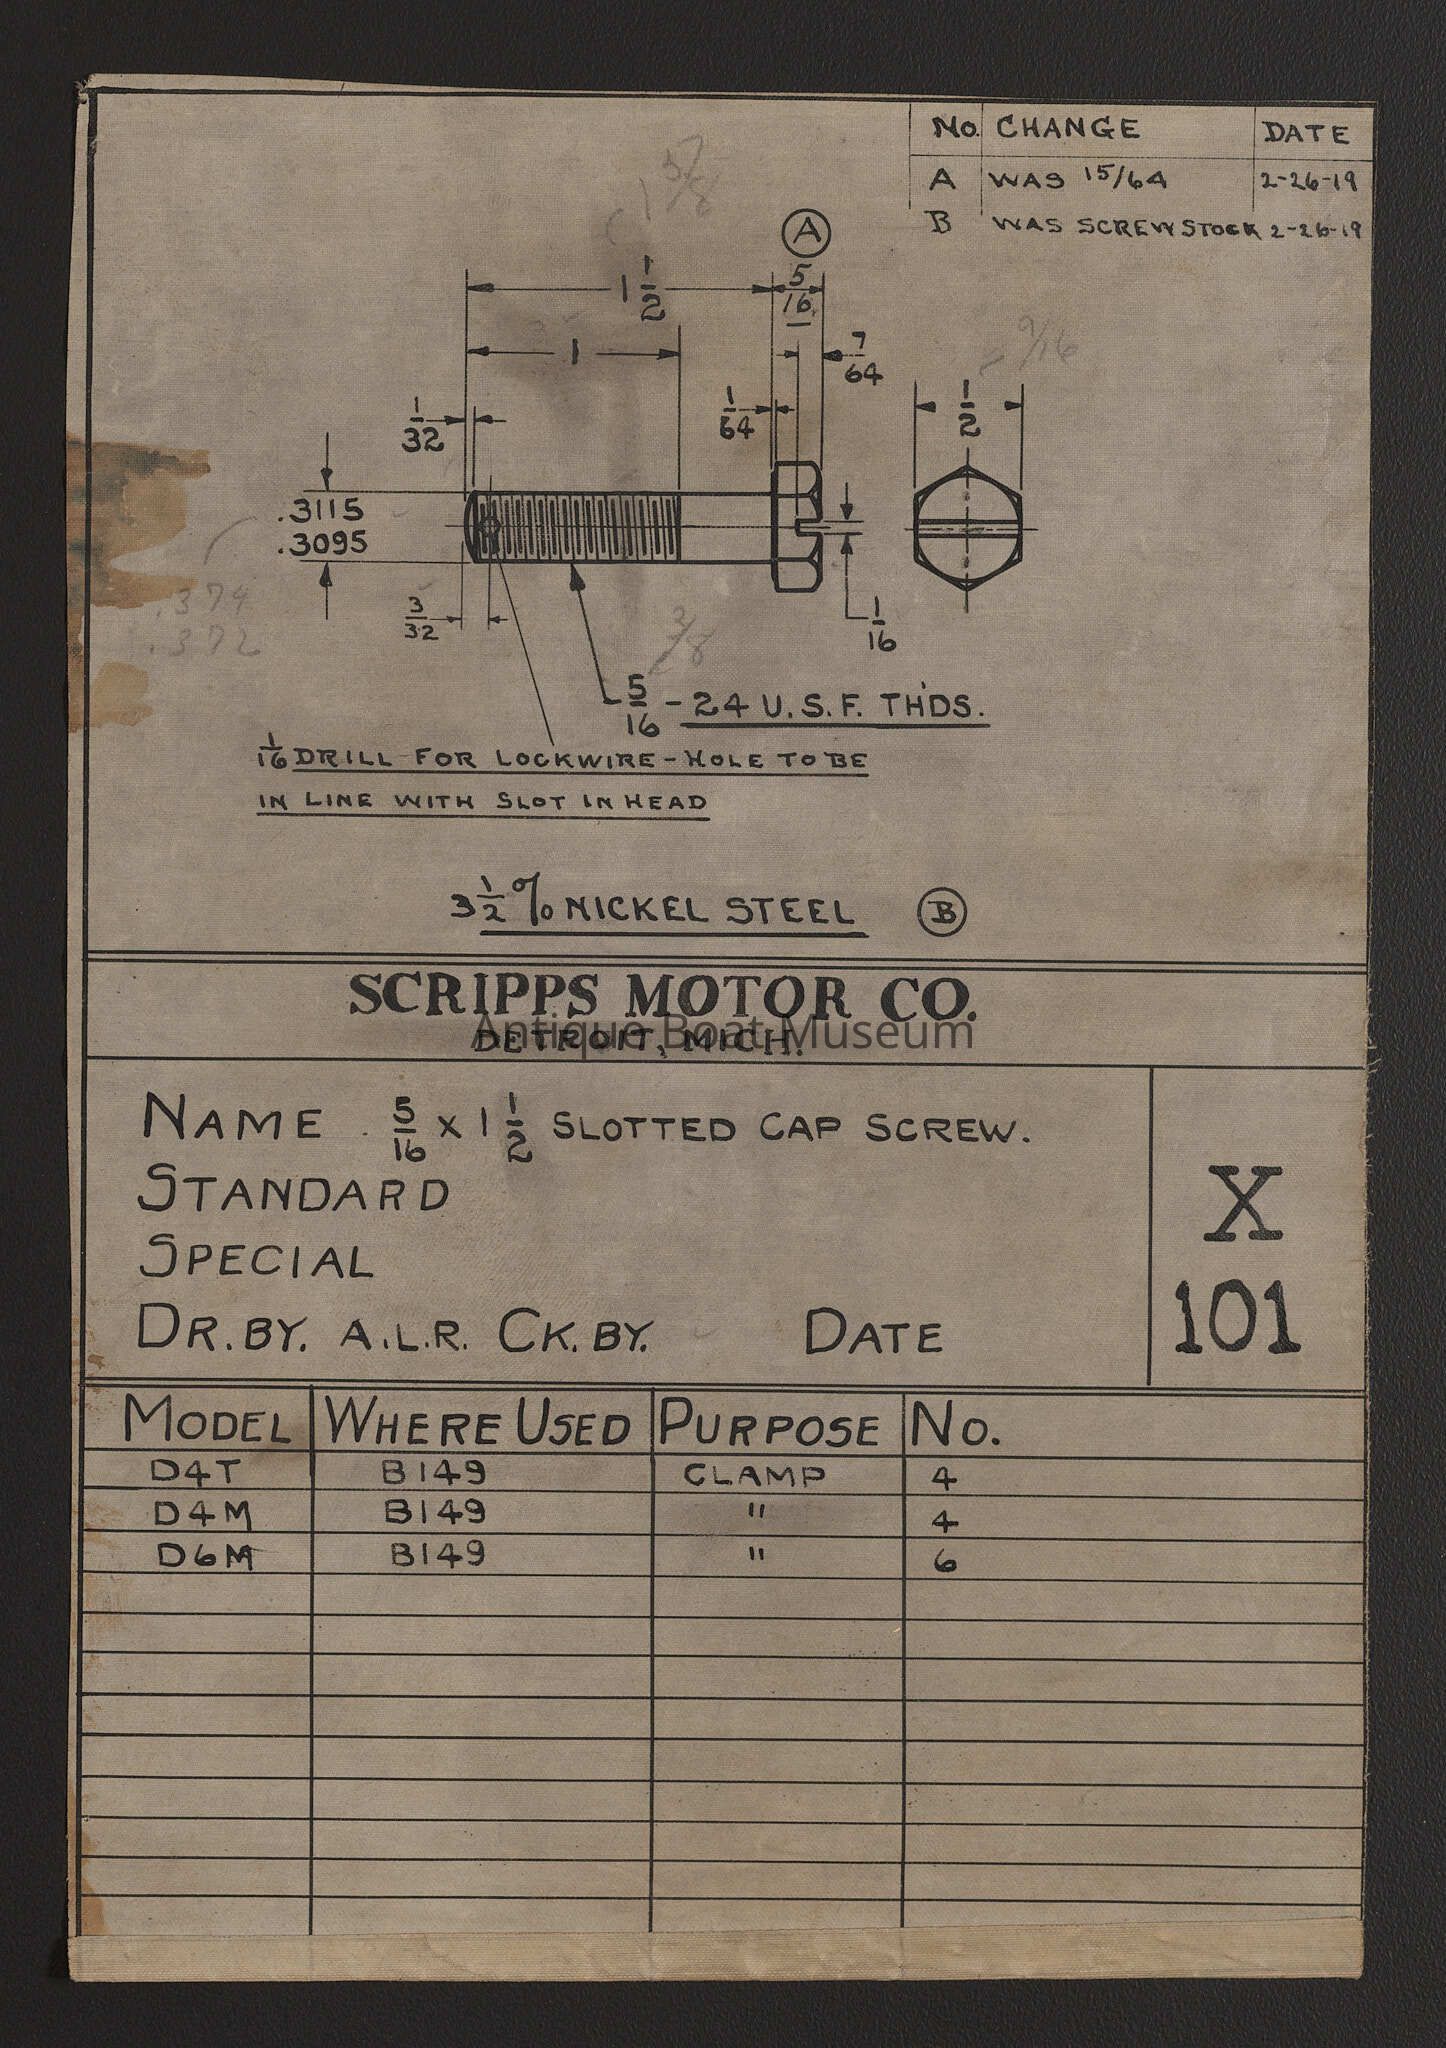 No. CHANGE DATE
A WAS 15/64 2-26-19
B WAS SCREW STOCK 2-26-19
1 5/8
A
1 1/2
5/16
1
7/64
9/16
1/32
1/64
1/2
.3115
.3095
.374
.372
3/32
3/8
1/16
5/16 - 24 U.S.F. TH'DS.
1/16 DRILL FOR LOCKWIRE - HOLE TO BE
IN LINE WITH SLOT IN HEAD
3 1/2 % NICKEL STEEL B
SCRIPPS MOTOR CO.
Antique Boat Museum
DETROIT, MICH.
NAME 5/16 x 1 1/2 SLOTTED CAP SCREW.
STANDARD
SPECIAL
X
101
DR. BY. A.L.R. CK. BY. DATE
MODEL WHERE USED PURPOSE No.
D4T B149 CLAMP 4
D4M B149 " 4
D6M B149 " 6